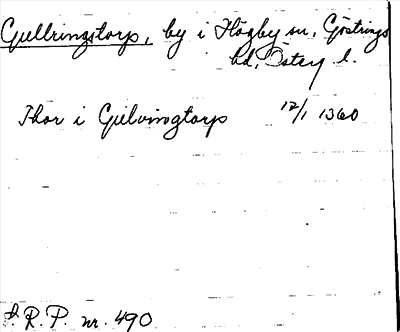 Gullringstorp, by i Högby sn, Göstrings
hd, Österg l.
Thor i Gulwingtorp 12/1 1360
S. R. P. nr. 490